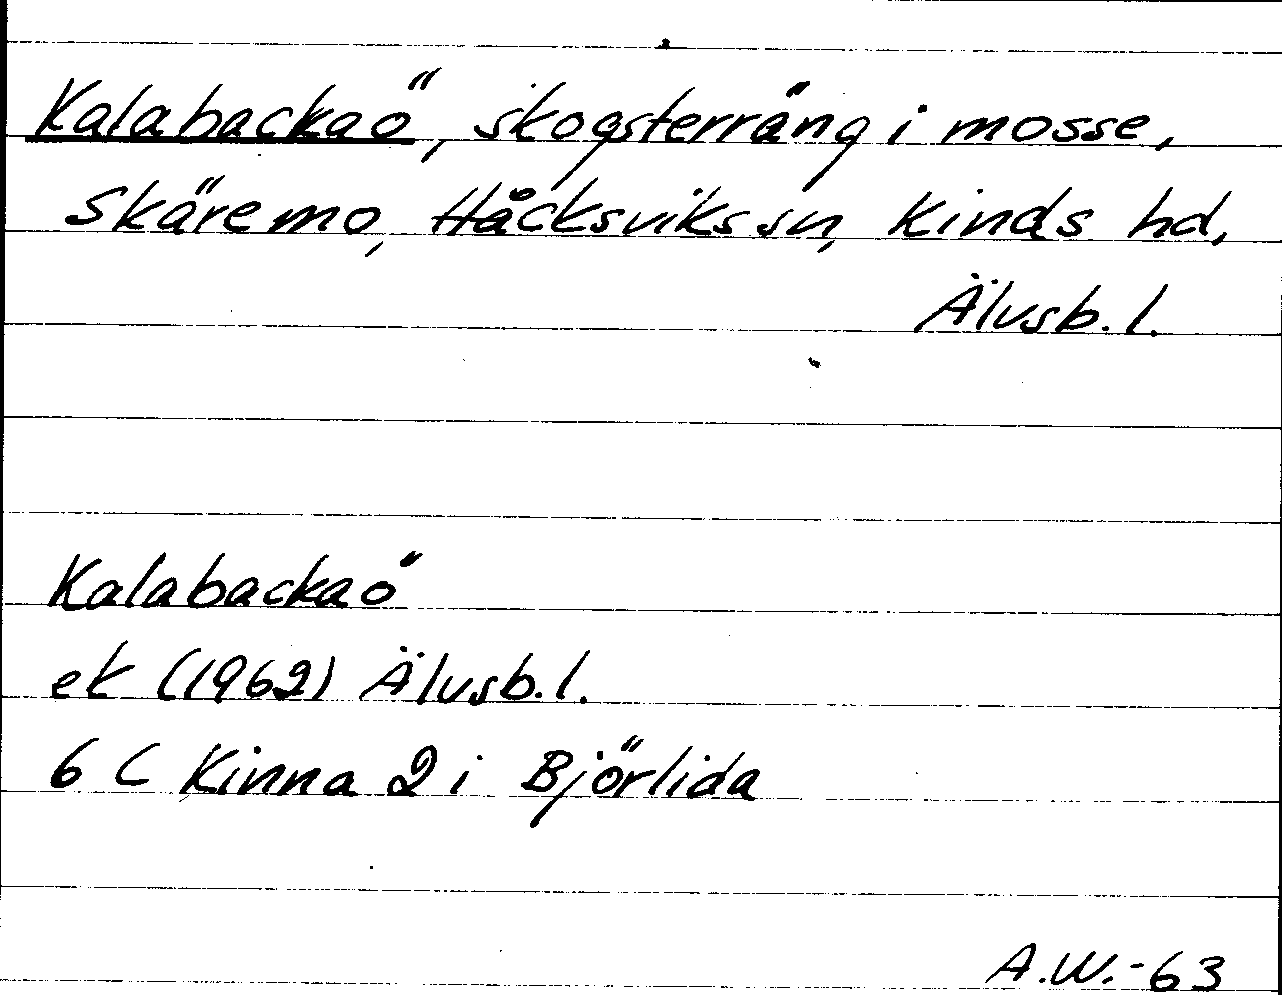 Kalabackaö, skogsterräng i mosse,
Skäremo, Håcksviks sn, Kinds hd,
Älvsb. l.
Kalabackaö
ek (1962) Älvsb. l.
6 C Kinna 2 i Björlida
A.W.-63